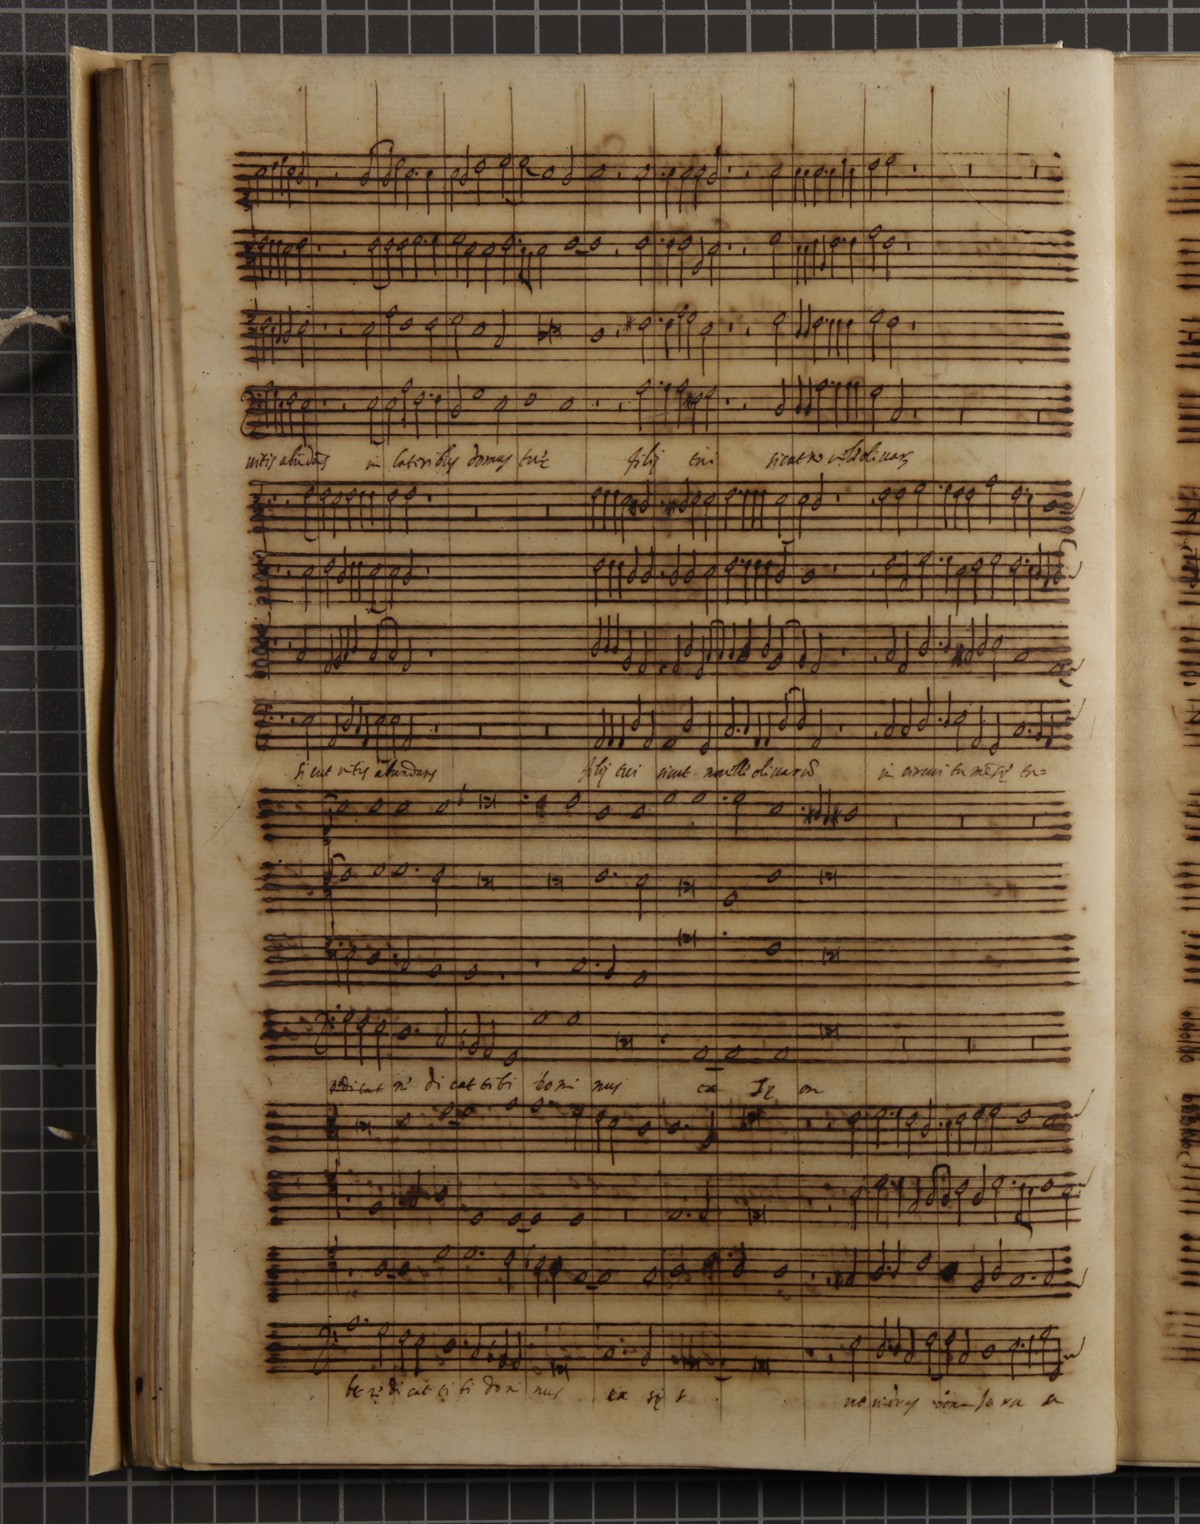 vitis abūdās in lateribus domus tuę filij tui sicut no vellē olivarū
sicut vitis abundans filij tui sicut novellē olivarū in circuitu mēsę tu=
nedicat ne di cat tibi domi nus ex Si on
be ne di cat ti bi domi nus ex si o ut videas bona Je ru sa